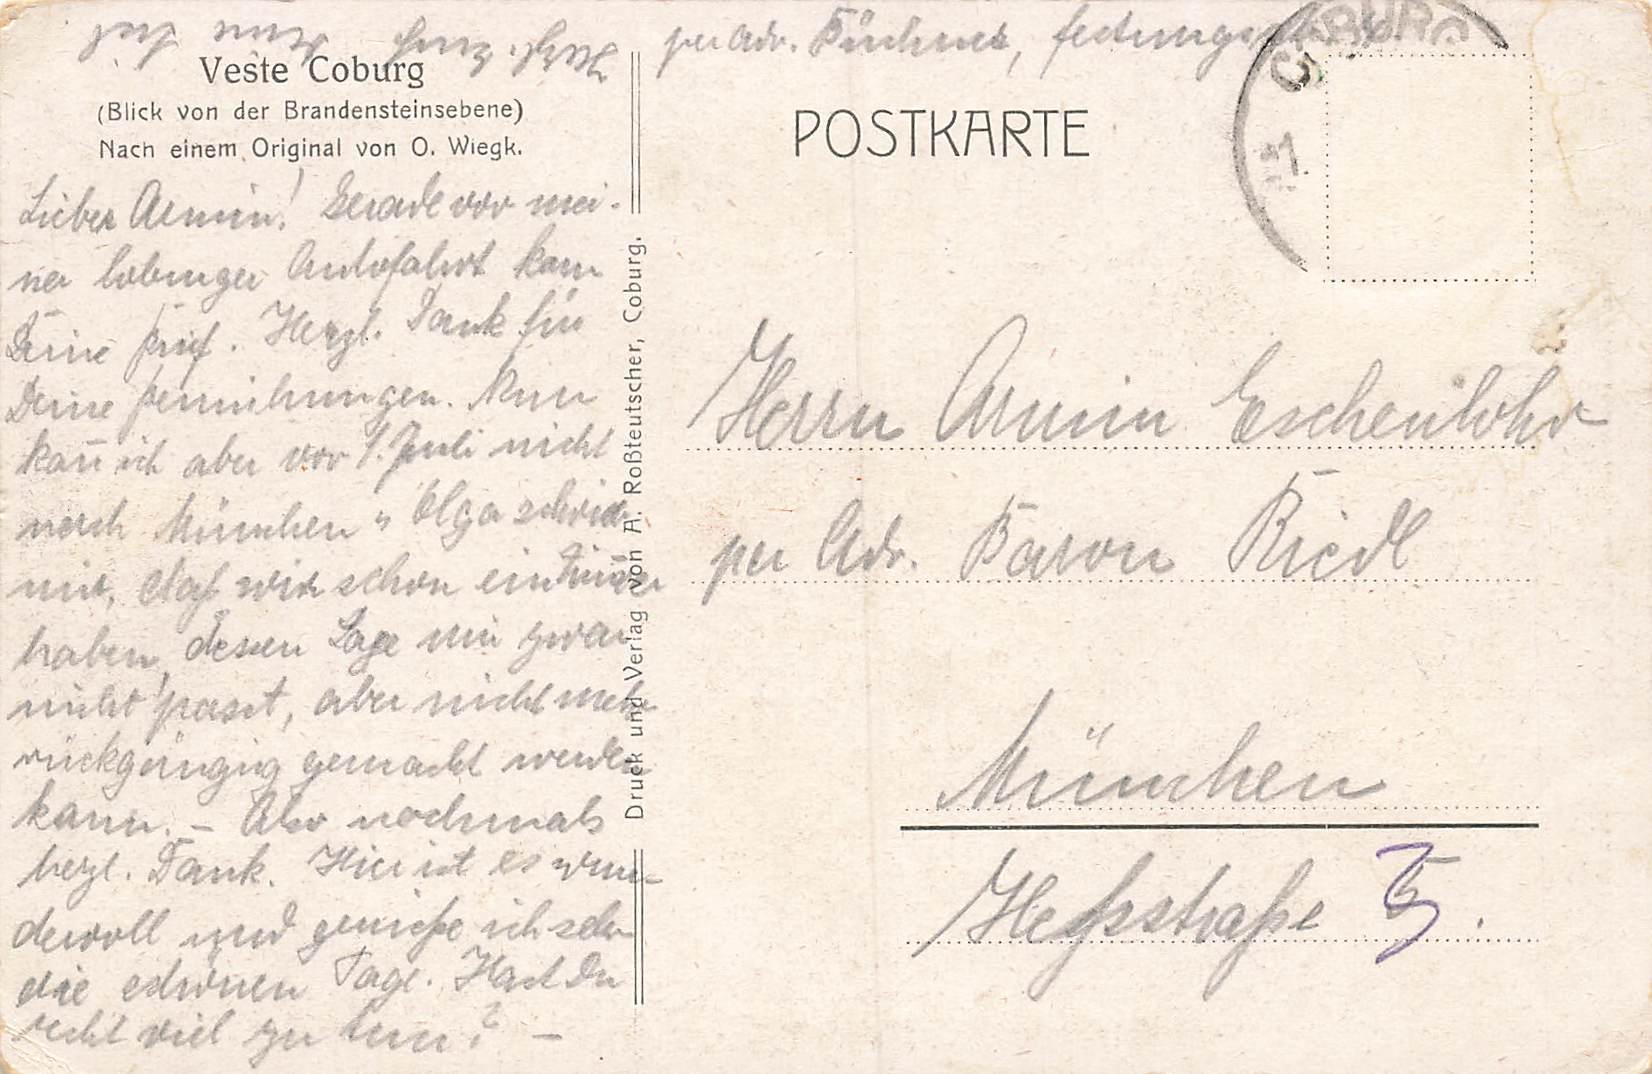 per Adr. Büchner, Festungsstr.
COBURG
Veste Coburg
(Blick von der Brandensteinsebene)
Nach einem Original von O. Wiegk.
POSTKARTE
Lieber Armin! Gerade vor mei-
ner Coburger Autofahrt kam
Deine Brief. Herzl. Dank für
Deine Bemühungen. Nun
kan̄ ich aber vor 1. Juli nicht
nach München u Olga schrieb
mir, daß wir schon ein Zimmer
haben, dessen Lage mir zwar
nicht passt, aber nicht mehr
rückgängig gemacht werden
kann. – Also nochmals
herzl. Dank. Hier ist es wun-
dervoll und genieße ich sehr
die schönen Tage. Hast Du
recht viel zu tun? –
Herzl.
Druck und Verlag von A. Roßteutscher, Coburg.
Herrn Armin Eschenlohr
per Adr. Baron Riedl
München
Heßstraße 5.